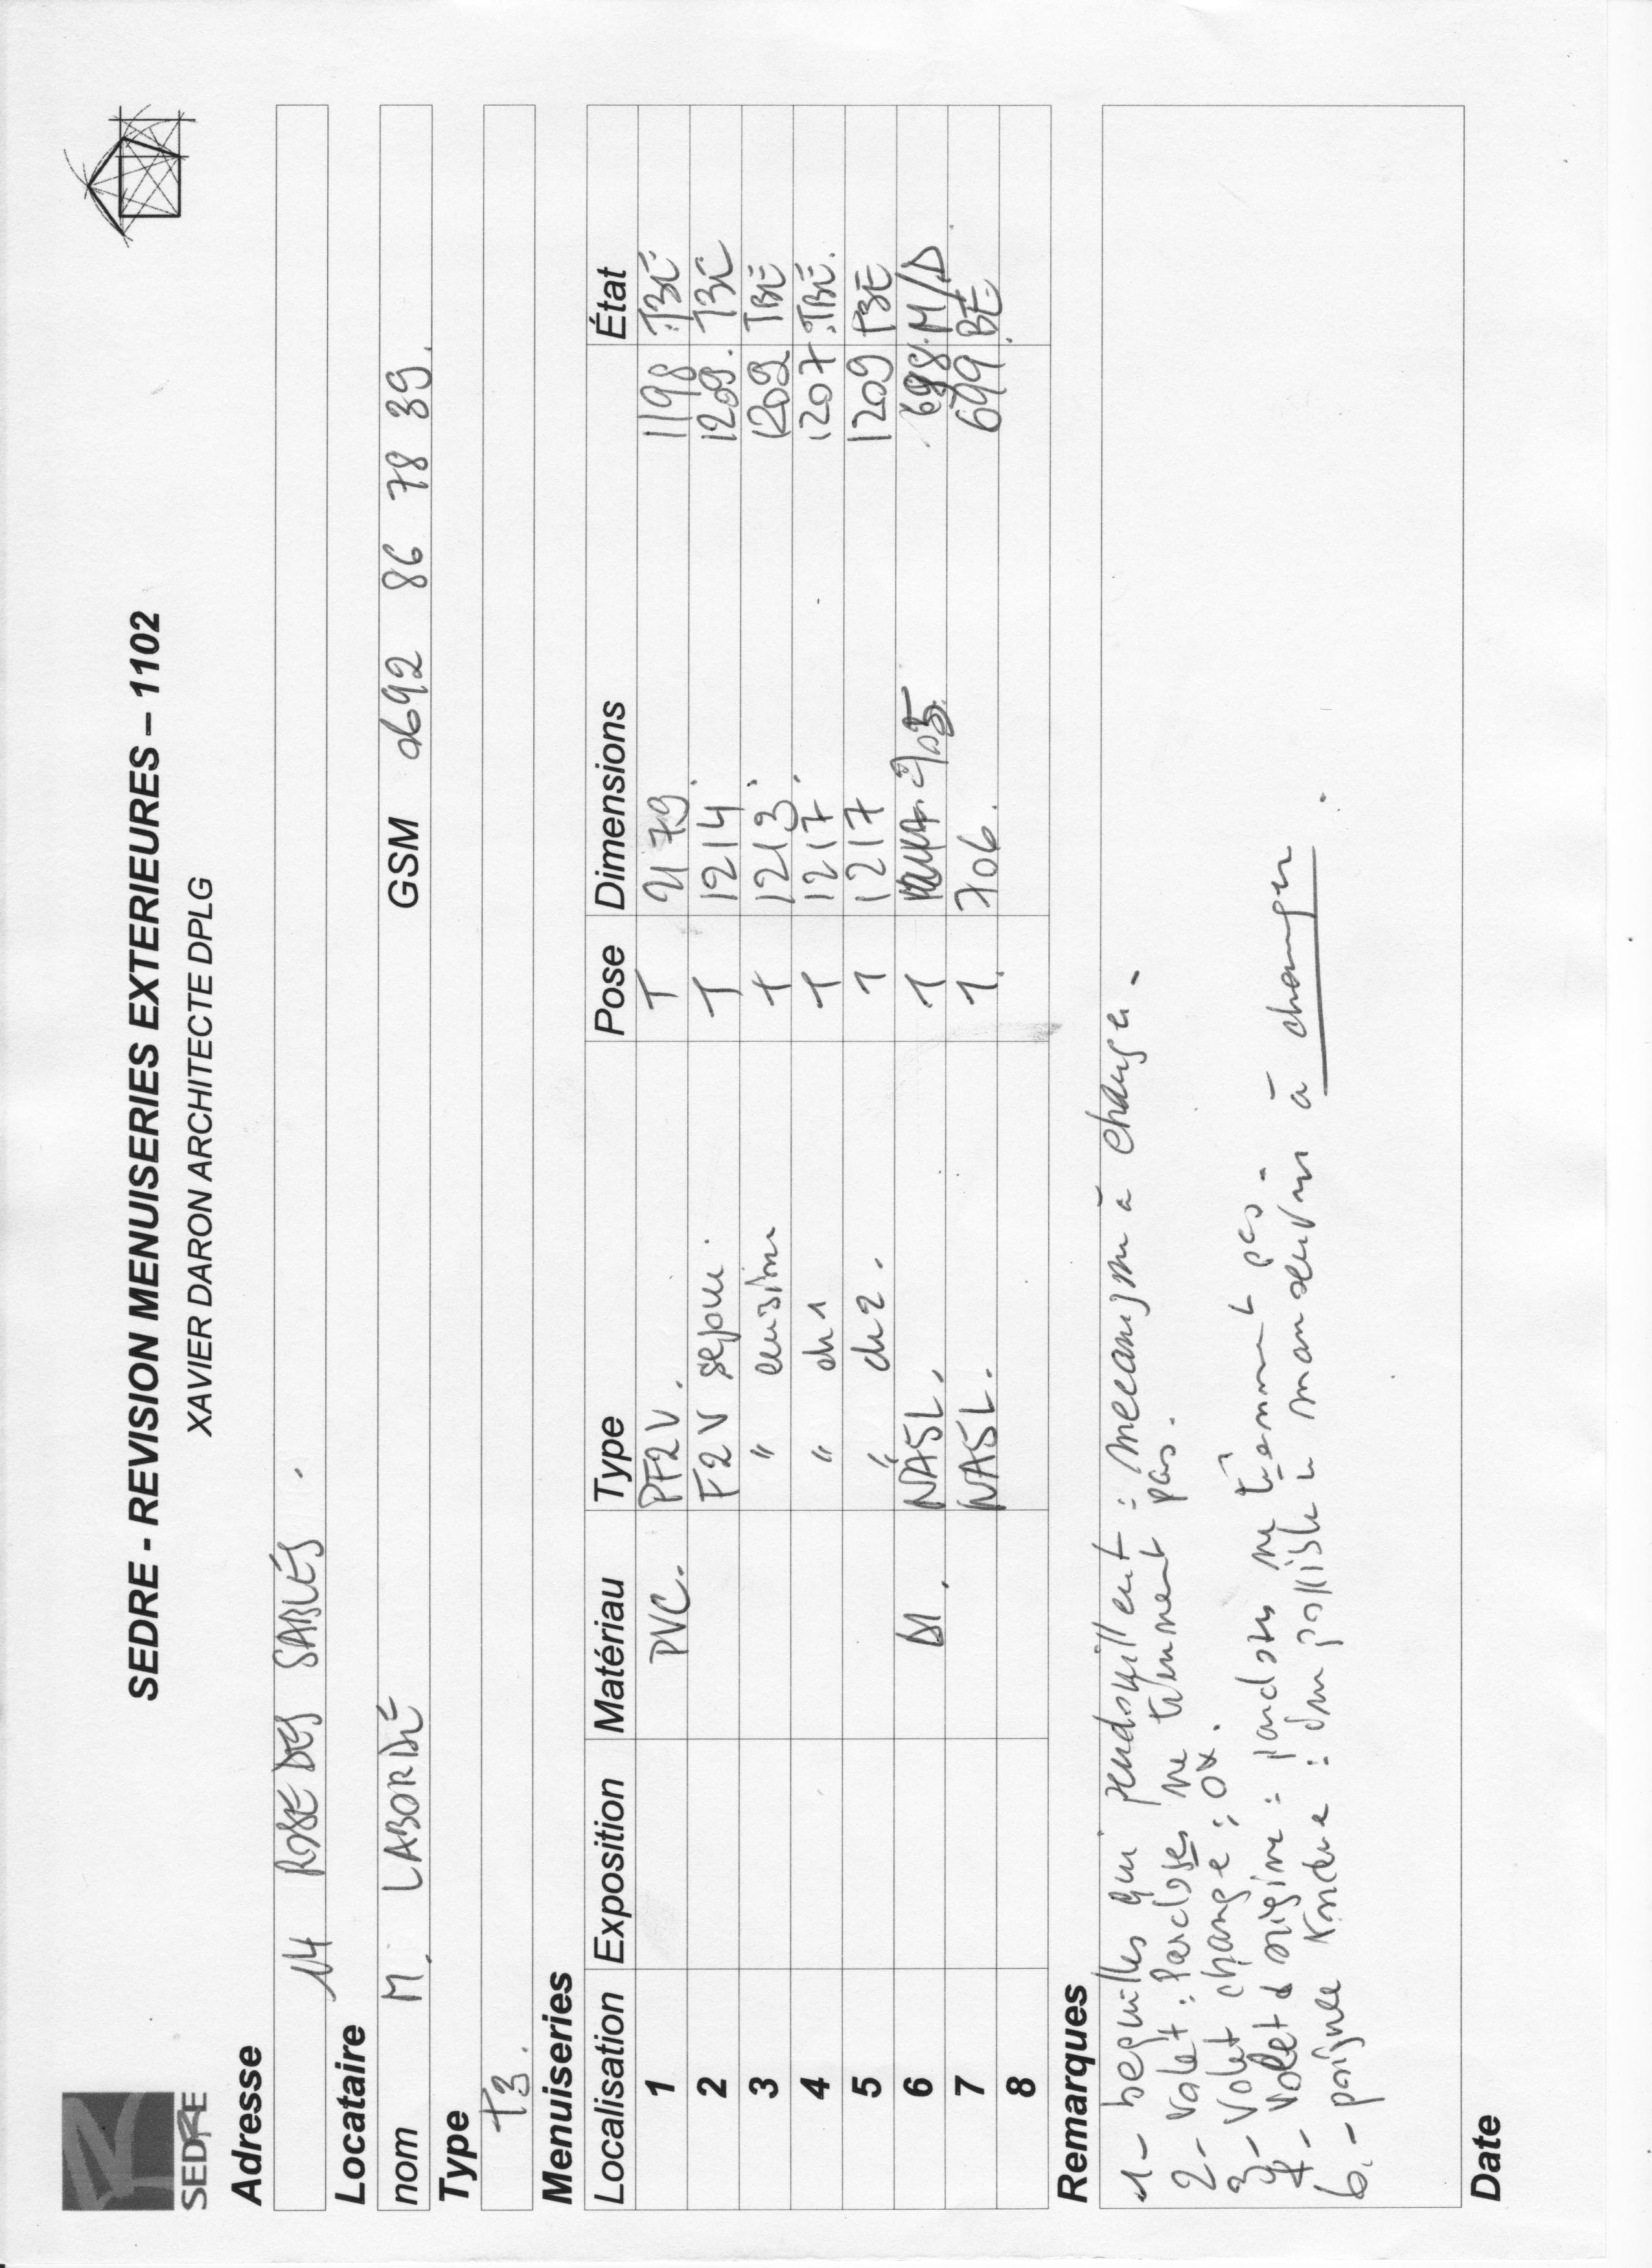 SEDRE
SEDRE - REVISION MENUISERIES EXTERIEURES – 1102
XAVIER DARON ARCHITECTE DPLG
Adresse
14 ROSE DES SABLES
Locataire
nom M. LABORDE GSM 0692 86 78 39
Type
T3
Menuiseries
Localisation Exposition Matériau Type Pose Dimensions État
1 PVC. PF2V. T 2179 1198 TBE
2 F2V séjour T 1214 1209 TBE
3 " cuisine T 1213 1209 TBE
4 " ch1 T 1217 1207 TBE
5 " ch2. T 1217 1209 TBE
6 Al. NA5L. T 705 698 M/D
7 NA5L. T 706 699 BE
8
Remarques
1 - bequilles qui pendouillent : mecanisme à changer.
2 - Volet : Parcloses ne tiennent pas.
3 - Volet changé : OK.
4 - Volet d'origine : ne tiennent pas.
6. - poignée tordue : Impossible manoeuvrer à changer
Date